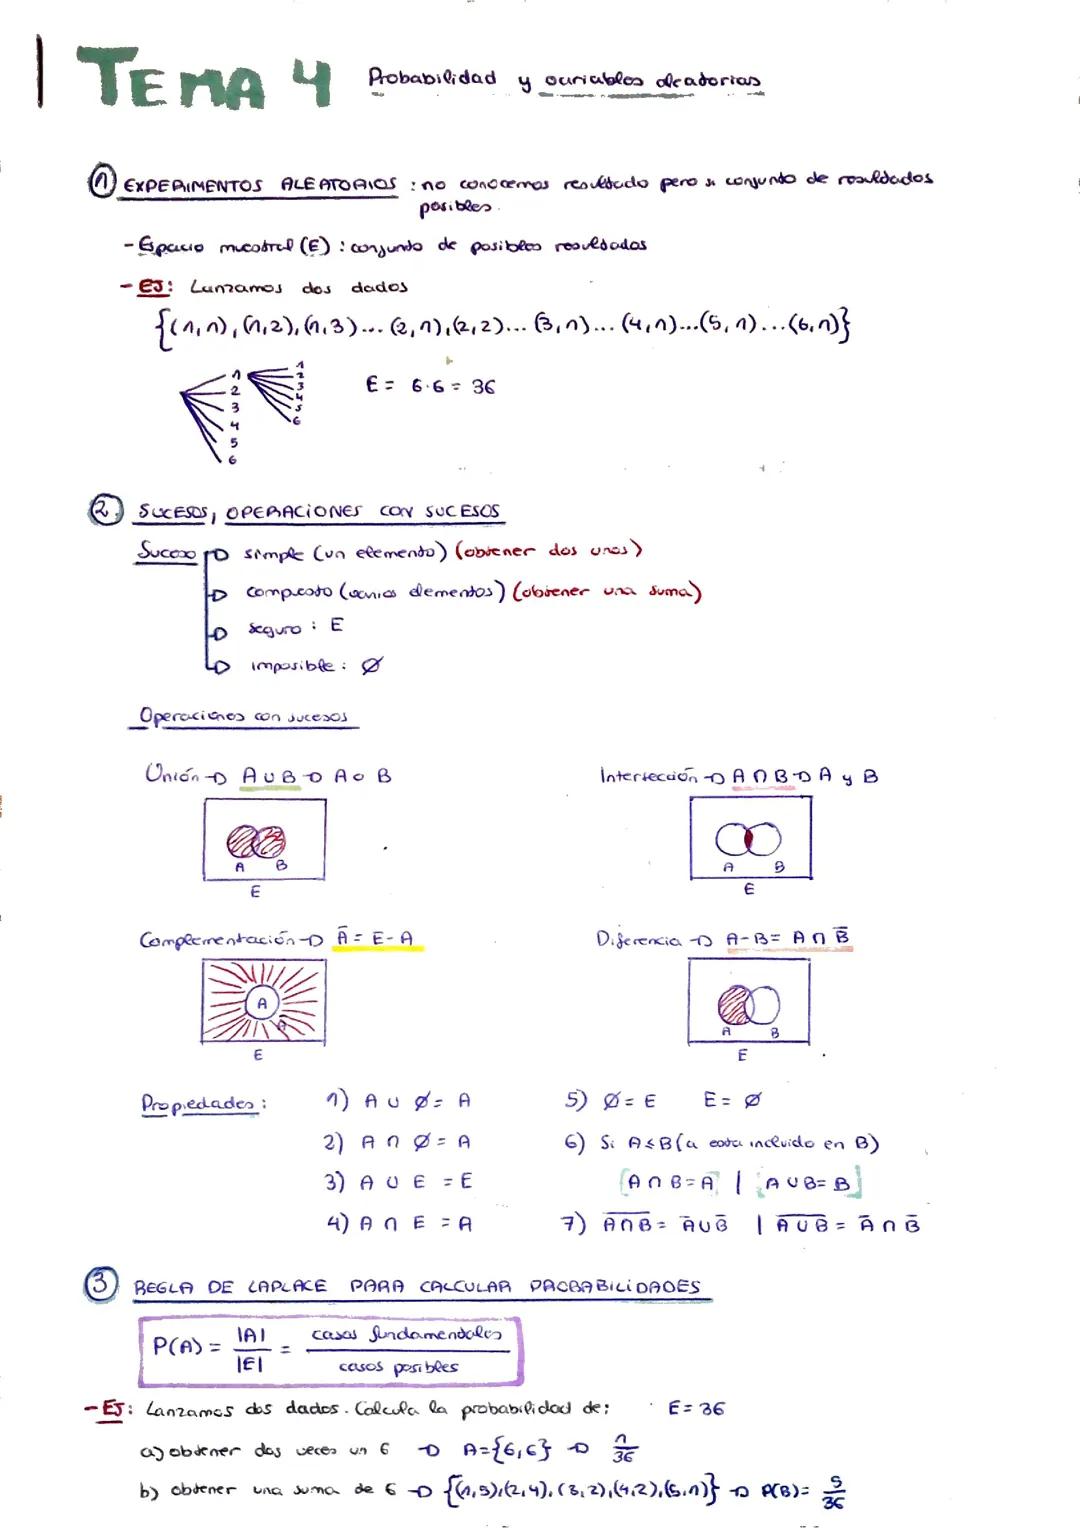 TEMA 4 Probabilidad y variables aleatorias
1 EXPERIMENTOS ALEATORIOS : no conocemos resultado pero si conjunto de resultados
posibles.
- Espacio muestral (E) : conjunto de posibles resultados
- EJ: Lanzamos dos dados
{(1,1), (1,2), (1,3)... (2,1), (2,2)... (3,1)... (4,1)...(5,1)...(6,1)}
1 2 3 4 5 6
1 2 3 4 5 6
E = 6·6 = 36
2. SUCESOS, OPERACIONES CON SUCESOS
Suceso simple (un elemento) (obtener dos unos)
compuesto (varios elementos) (obtener una suma)
seguro : E
imposible : Ø
Operaciones con sucesos
Unión → A ∪ B → A o B
Intersección → A ∩ B → A y B
A B
E
A B
E
Complementación → Ā = E - A
Diferencia → A-B = A ∩ B̄
A
Ā
E
A B
E
Propiedades :
1) A ∪ Ø = A
5) Ø = E E = Ø
2) A ∩ Ø = A
6) Si A ≤ B (a esta incluido en B)
3) A ∪ E = E
[A ∩ B = A] | [A ∪ B = B]
4) A ∩ E = A
7) A̅∩̅B̅ = Ā ∪ B̄ | A̅∪̅B̅ = Ā ∩ B̄
3 REGLA DE LAPLACE PARA CALCULAR PROBABILIDADES
P(A) = |A| / |E| = casos fundamentales / casos posibles
- EJ: Lanzamos dos dados. Calcula la probabilidad de: E = 36
a) obtener dos veces un 6 → A={6,6} → 1/36
b) obtener una suma de 6 → {(1,5),(2,4),(3,2),(4,2),(5,1)} → P(B) = 5/36